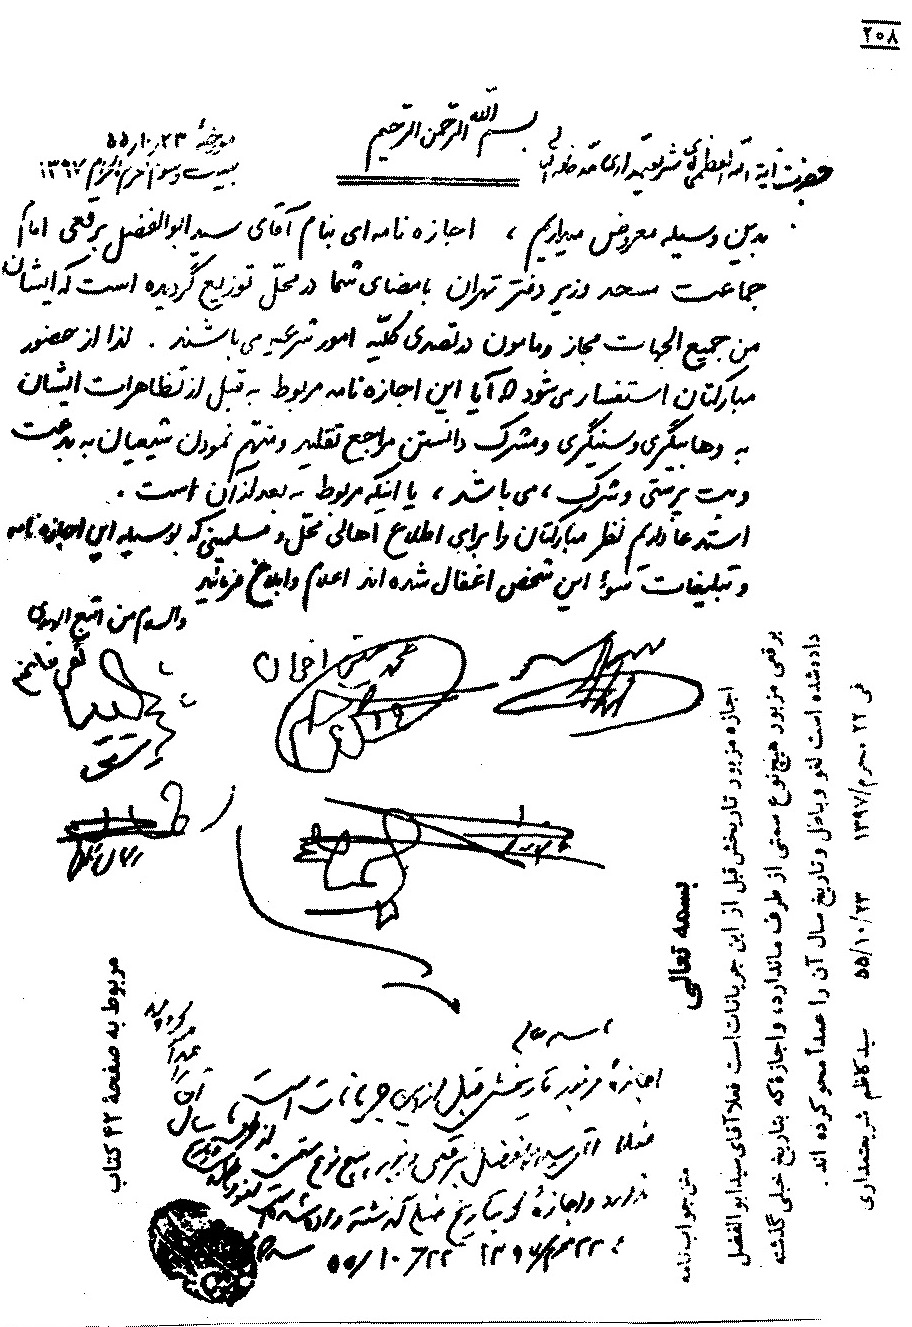 ۲۰۸
بسم الله الرحمن الرحیم
مورخهٔ ۵۵/۱۰/۲۳
بیست و سوم محرم الحرام ۱۳۹۷
حضرت آیة الله العظمی آقای شریعتمداری مد ظله العالی
بدین وسیله معروض میداریم ، اجازه نامه ای بنام آقای سید ابوالفضل برقعی امام
جماعت مسجد وزیر دفتر تهران بامضای شما در محلّ توزیع گردیده است که ایشان
من جمیع الجهات مجاز و مامون در تصدی کلیّه امور شرعیه می باشند . لذا از حضور
مبارکتان استفسار می شود که آیا این اجازه نامه مربوط به قبل از تظاهرات ایشان
به وهابیگری و سنیگری و مشرک دانستن مراجع تقلید و متهم نمودن شیعیان به بدعت
و بت پرستی و شرک ، می باشد ، یا اینکه مربوط به بعد از آن است .
استدعا داریم نظر مبارکتان را برای اطلاع اهالی محل و مسلمینی که بوسیله این اجازه نامه
و تبلیغات سوء این شخص اغفال شده اند اعلام و ابلاغ فرمائید
والسلام من اتبع الهدی
بسمه تعالی
اجازهٔ مزبور تاریخش قبل از این جریانات است
فعلا آقای سید ابوالفضل برقعی مزبور هیچ نوع سمتی از طرف ما
ندارد و اجازهٔ که بتاریخ خیلی گذشته داده شده است لغو و باطل
و تاریخ سال آن را عمداً محو کرده اند
فی ۲۲ محرم ۱۳۹۷ ۵۵/۱۰/۲۳
متن جواب نامه
بسمه تعالی
اجازه مزبور تاریخش قبل از این جریانات است فعلا آقای سید ابوالفضل
برقعی مزبور هیچ نوع سمتی از طرف ما ندارد، و اجازۀ که بتاریخ خیلی گذشته
داده شده است لغو و باطل و تاریخ سال آن را عمداً محو کرده اند .
فی ۲۲ محرم/۱۳۹۷ ۵۵/۱۰/۲۳ سید کاظم شریعتمداری
مربوط به صفحهٔ ۴۲ کتاب